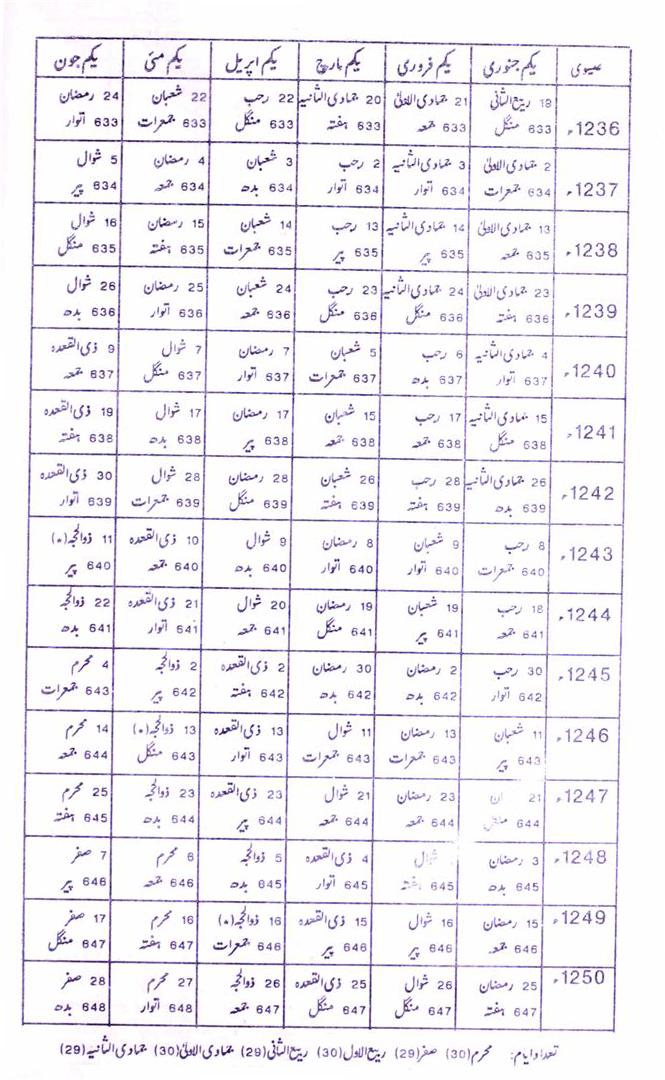 عیسوی یکم جنوری یکم فروری یکم مارچ یکم اپریل یکم مئی یکم جون
18 ربیع الثانی 21 جمادی الاولیٰ 20 جمادی الثانیہ 22 رجب 22 شعبان 24 رمضان
1236ء 633 منگل 633 جمعہ 633 ہفتہ 633 منگل 633 جمعرات 633 اتوار
2 جمادی الاولیٰ 3 جمادی الثانیہ 2 رجب 3 شعبان 4 رمضان 5 شوال
1237ء 634 جمعرات 634 اتوار 634 اتوار 634 بدھ 634 جمعہ 634 پیر
13 جمادی الاولیٰ 14 جمادی الثانیہ 13 رجب 14 شعبان 15 رمضان 16 شوال
1238ء 635 جمعہ 635 پیر 635 پیر 635 جمعرات 635 ہفتہ 635 منگل
23 جمادی الاولیٰ 24 جمادی الثانیہ 23 رجب 24 شعبان 25 رمضان 26 شوال
1239ء 636 ہفتہ 636 منگل 636 منگل 636 جمعہ 636 اتوار 636 بدھ
4 جمادی الثانیہ 6 رجب 5 شعبان 7 رمضان 7 شوال 9 ذی القعدہ
1240ء 637 اتوار 637 بدھ 637 جمعرات 637 اتوار 637 منگل 637 جمعہ
15 جمادی الثانیہ 17 رجب 15 شعبان 17 رمضان 17 شوال 19 ذی القعدہ
1241ء 638 منگل 638 جمعہ 638 جمعہ 638 پیر 638 بدھ 638 ہفتہ
26 جمادی الثانیہ 28 رجب 26 شعبان 28 رمضان 28 شوال 30 ذی القعدہ
1242ء 639 بدھ 639 ہفتہ 639 ہفتہ 639 منگل 639 جمعرات 639 اتوار
8 رجب 9 شعبان 8 رمضان 9 شوال 10 ذی القعدہ 11 ذوالحجہ (*)
1243ء 640 جمعرات 640 اتوار 640 اتوار 640 بدھ 640 جمعہ 640 پیر
18 رجب 19 شعبان 19 رمضان 20 شوال 21 ذی القعدہ 22 ذوالحجہ
1244ء 641 جمعہ 641 پیر 641 منگل 641 جمعہ 641 اتوار 641 بدھ
30 رجب 2 رمضان 30 رمضان 2 ذی القعدہ 2 ذوالحجہ 4 محرم
1245ء 642 اتوار 642 بدھ 642 بدھ 642 ہفتہ 642 پیر 643 جمعرات
11 شعبان 13 رمضان 11 شوال 13 ذی القعدہ 13 ذوالحجہ (*) 14 محرم
1246ء 643 پیر 643 جمعرات 643 جمعرات 643 اتوار 643 منگل 644 جمعہ
21 23 رمضان 21 شوال 23 ذی القعدہ 23 ذوالحجہ 25 محرم
1247ء 644 منگل 644 جمعہ 644 جمعہ 644 پیر 644 بدھ 645 ہفتہ
3 رمضان شوال 4 ذی القعدہ 5 ذوالحجہ 6 محرم 7 صفر
1248ء 645 بدھ 645 ہفتہ 645 اتوار 645 بدھ 646 جمعہ 646 پیر
15 رمضان 16 شوال 15 ذی القعدہ 16 ذوالحجہ (*) 16 محرم 17 صفر
1249ء 646 جمعہ 646 پیر 646 پیر 646 جمعرات 647 ہفتہ 647 منگل
25 رمضان 26 شوال 25 ذی القعدہ 26 ذوالحجہ 27 محرم 28 صفر
1250ء 647 ہفتہ 647 منگل 647 منگل 647 جمعہ 648 اتوار 648 بدھ
تعداد ایام: محرم (30) صفر (29) ربیع الاول (30) ربیع الثانی (29) جمادی الاولیٰ (30) جمادی الثانیہ (29)